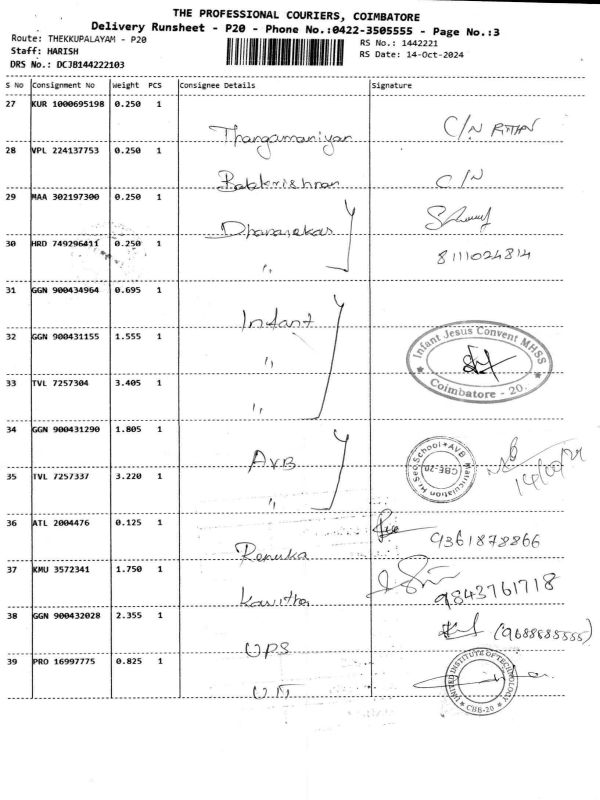 THE PROFESSIONAL COURIERS, COIMBATORE
Delivery Runsheet - P20 - Phone No.:0422-3505555 - Page No.:3
Route: THEKKUPALAYAM - P20
Staff: HARISH
DRS No.: DCJB144222103
RS No.: 1442221
RS Date: 14-Oct-2024
S No Consignment No Weight PCS Consignee Details Signature
27 KUR 1000695198 0.250 1
Thangamaniyan C/N
28 VPL 224137753 0.250 1
Balakrishnan C/N
29 MAA 302197300 0.250 1
Dhanasekar
30 HRD 749296411 0.250 1
" 8111024814
31 GGN 900434964 0.695 1
Infant
32 GGN 900431155 1.555 1
"
Infant Jesus Convent MHSS
Coimbatore - 20.
33 TVL 7257304 3.405 1
"
34 GGN 900431290 1.805 1
AVB
AVB Matriculation Hr Sec School
CBE-20
35 TVL 7257337 3.220 1
"
36 ATL 2004476 0.125 1
Renuka 9361878866
37 KMU 3572341 1.750 1
Kavitha 9843761718
38 GGN 900432028 2.355 1
UPS (9688885555)
39 PRO 16997775 0.825 1
UNITED INSTITUTE OF TECHNOLOGY
CBB-20